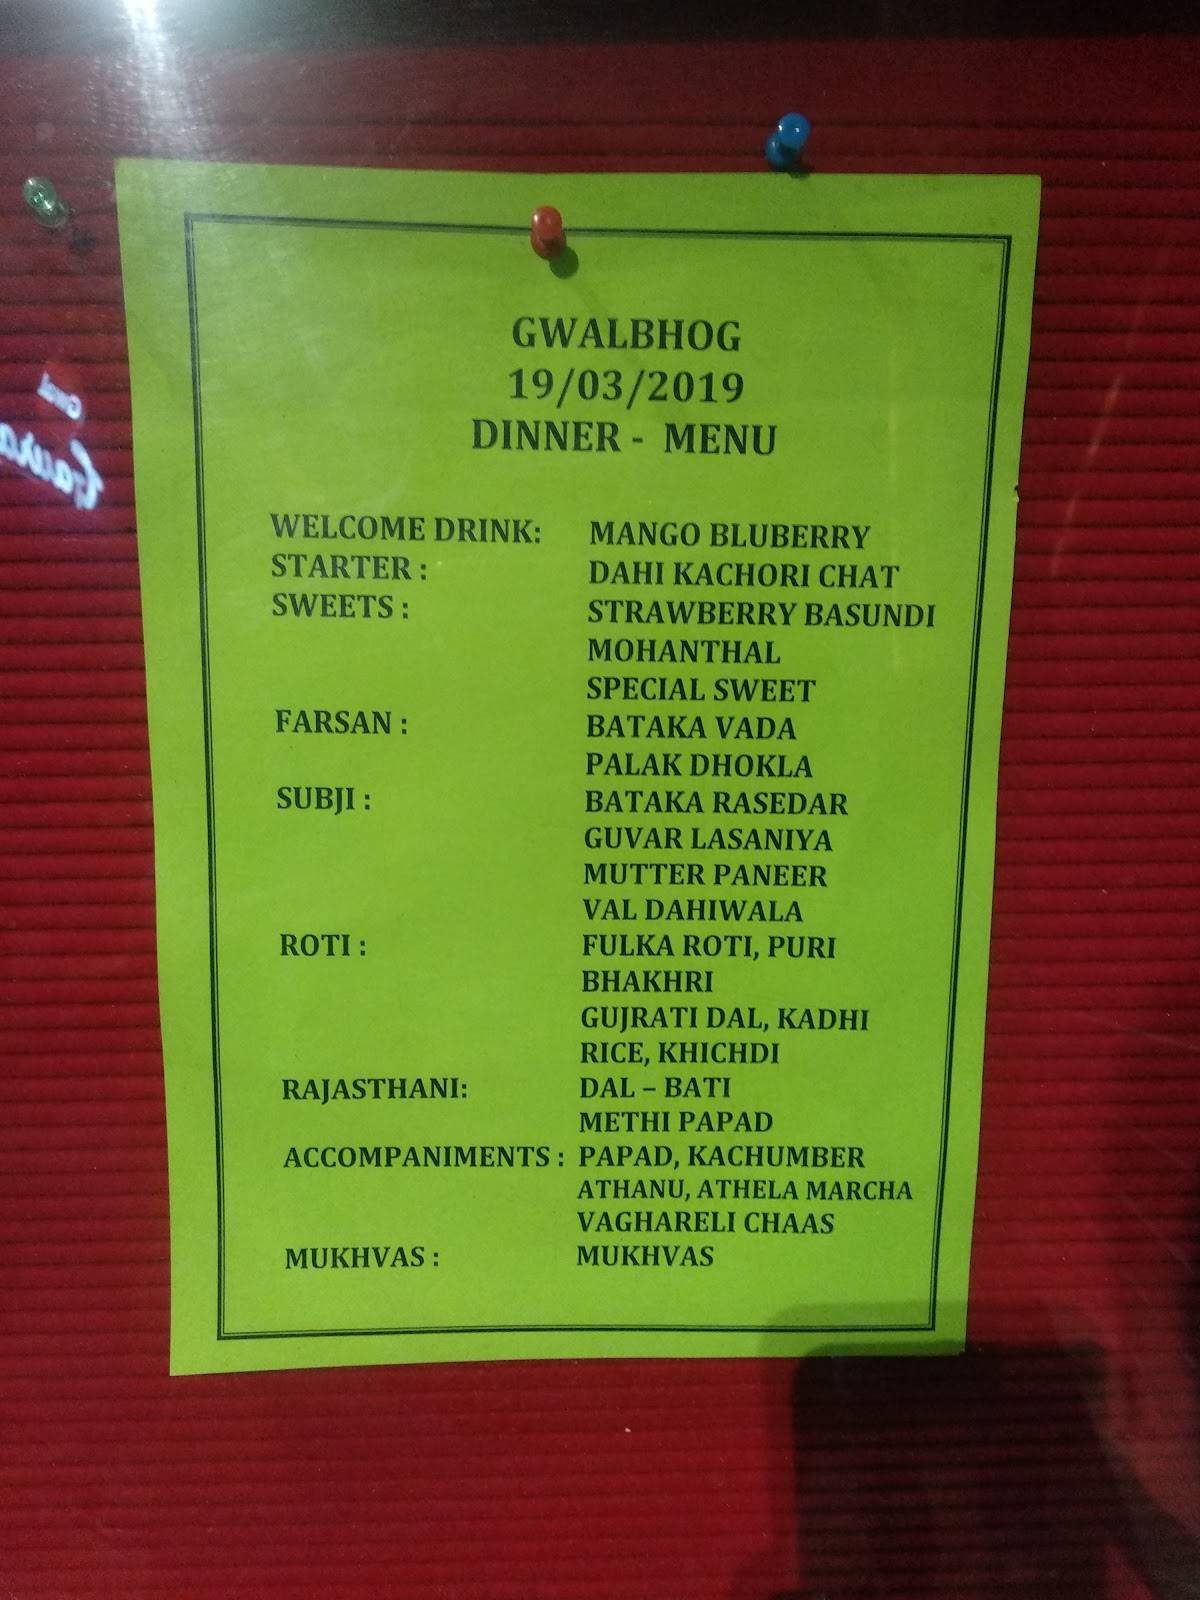 GWALBHOG
19/03/2019
DINNER - MENU
WELCOME DRINK: MANGO BLUBERRY
STARTER : DAHI KACHORI CHAT
SWEETS : STRAWBERRY BASUNDI
MOHANTHAL
SPECIAL SWEET
FARSAN : BATAKA VADA
PALAK DHOKLA
SUBJI : BATAKA RASEDAR
GUVAR LASANIYA
MUTTER PANEER
VAL DAHIWALA
ROTI : FULKA ROTI, PURI
BHAKHRI
GUJRATI DAL, KADHI
RICE, KHICHDI
RAJASTHANI: DAL – BATI
METHI PAPAD
ACCOMPANIMENTS : PAPAD, KACHUMBER
ATHANU, ATHELA MARCHA
VAGHARELI CHAAS
MUKHVAS : MUKHVAS